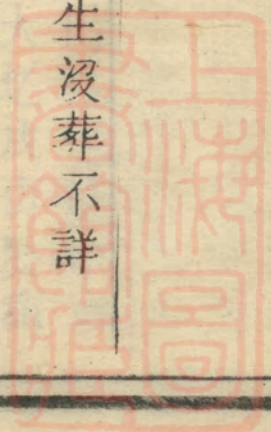 生没葬不詳
上海圖
書館藏